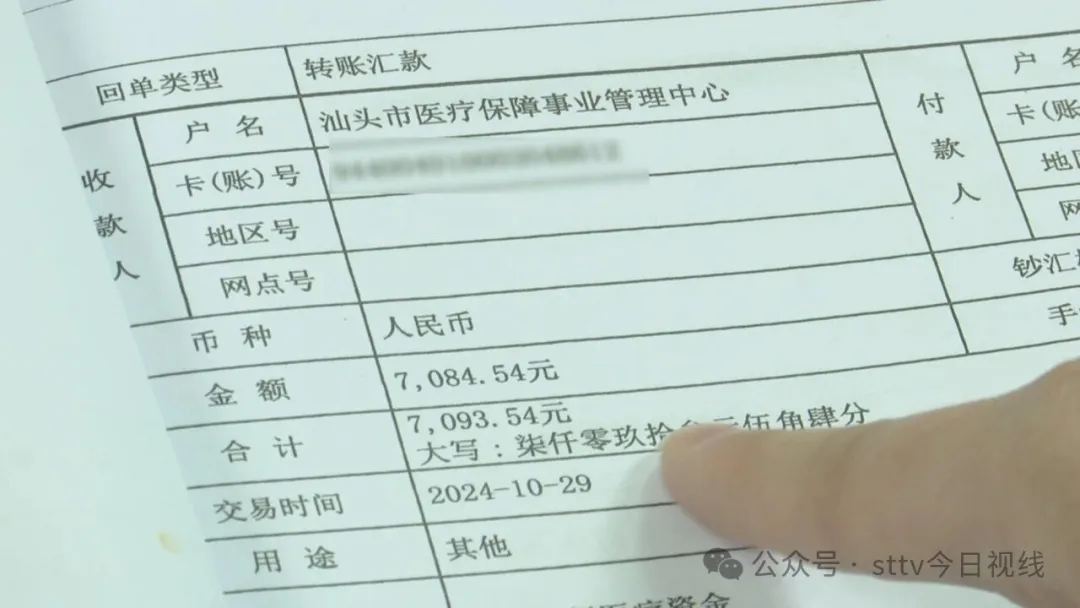 回单类型 转账汇款
收款人 户名 汕头市医疗保障事业管理中心 付款人 户名
卡(账)号 卡(账
地区号 地区
网点号 网
币种 人民币 钞汇
金额 7,084.54元 手
合计 7,093.54元
大写：柒仟零玖拾叁元伍角肆分
交易时间 2024-10-29
用途 其他
医疗资金
公众号·sttv今日视线